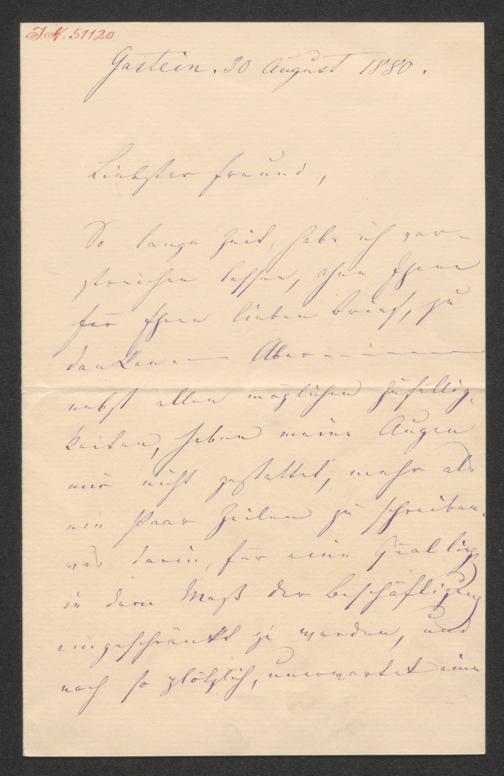 I.N. 51120
Gastein. 30 August 1880.
Liebster Freund,
So lange Zeit, habe ich ver-
streichen lassen, ohne Ihnen
für Ihren lieben Brief, zu
danken — Aber — — — —
nebst allen möglichen Zufällig-
keiten, haben meine Augen
mir nicht gestattet, mehr als
ein Paar Zeilen zu schreiben.
was darin, für eine Qual liegt
in dem Maß der Beschäftigung
eingeschränkt zu werden, und
noch so plötzlich, unerwartet eine